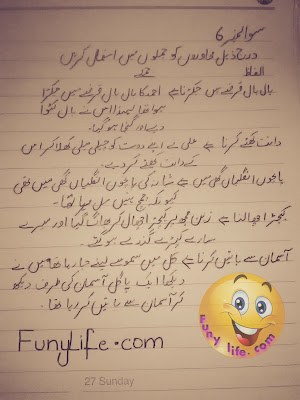 سوالنمبر 6
درج ذیل محاوروں کو جملوں میں استعمال کریں
الفاظ جملے
بال بال قرضے میں جکڑنا ہے احمد کا بال بال قرضے میں جکڑا
ہوا تھا لہذا اس نے بال کٹوا
دیے اور گنجا ہو گیا۔
دانت کھٹے کرنا ہے علی نے اپنے دوست کو جیلی میلی کھلا کر اس
کے دانت کھٹے کر دیے۔
پانچوں انگلیاں گھی میں ہے شارٹہ کی پانچوں انگلیاں گھی میں تھی
کیونکہ چمچ نہیں مل رہا تھا۔
کیچڑ اچھالنا ہے زین مجھ پر کیچڑ اچھال کر بھاگ گیا اور میرے
سارے کپڑے گندے ہو گئے۔
آسمان سے باتیں کرنا ہے کل میں سموسے لینے جا رہا تھا میں نے
دیکھا ایک پاگل آسمان کی طرف دیکھ
کر آسمان سے باتیں کر رہا تھا۔
FunyLife.com
Funy life.com
27 Sunday